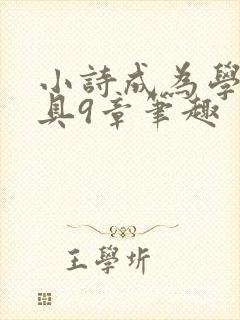 小詩成為學
具9章筆趣
王學圻